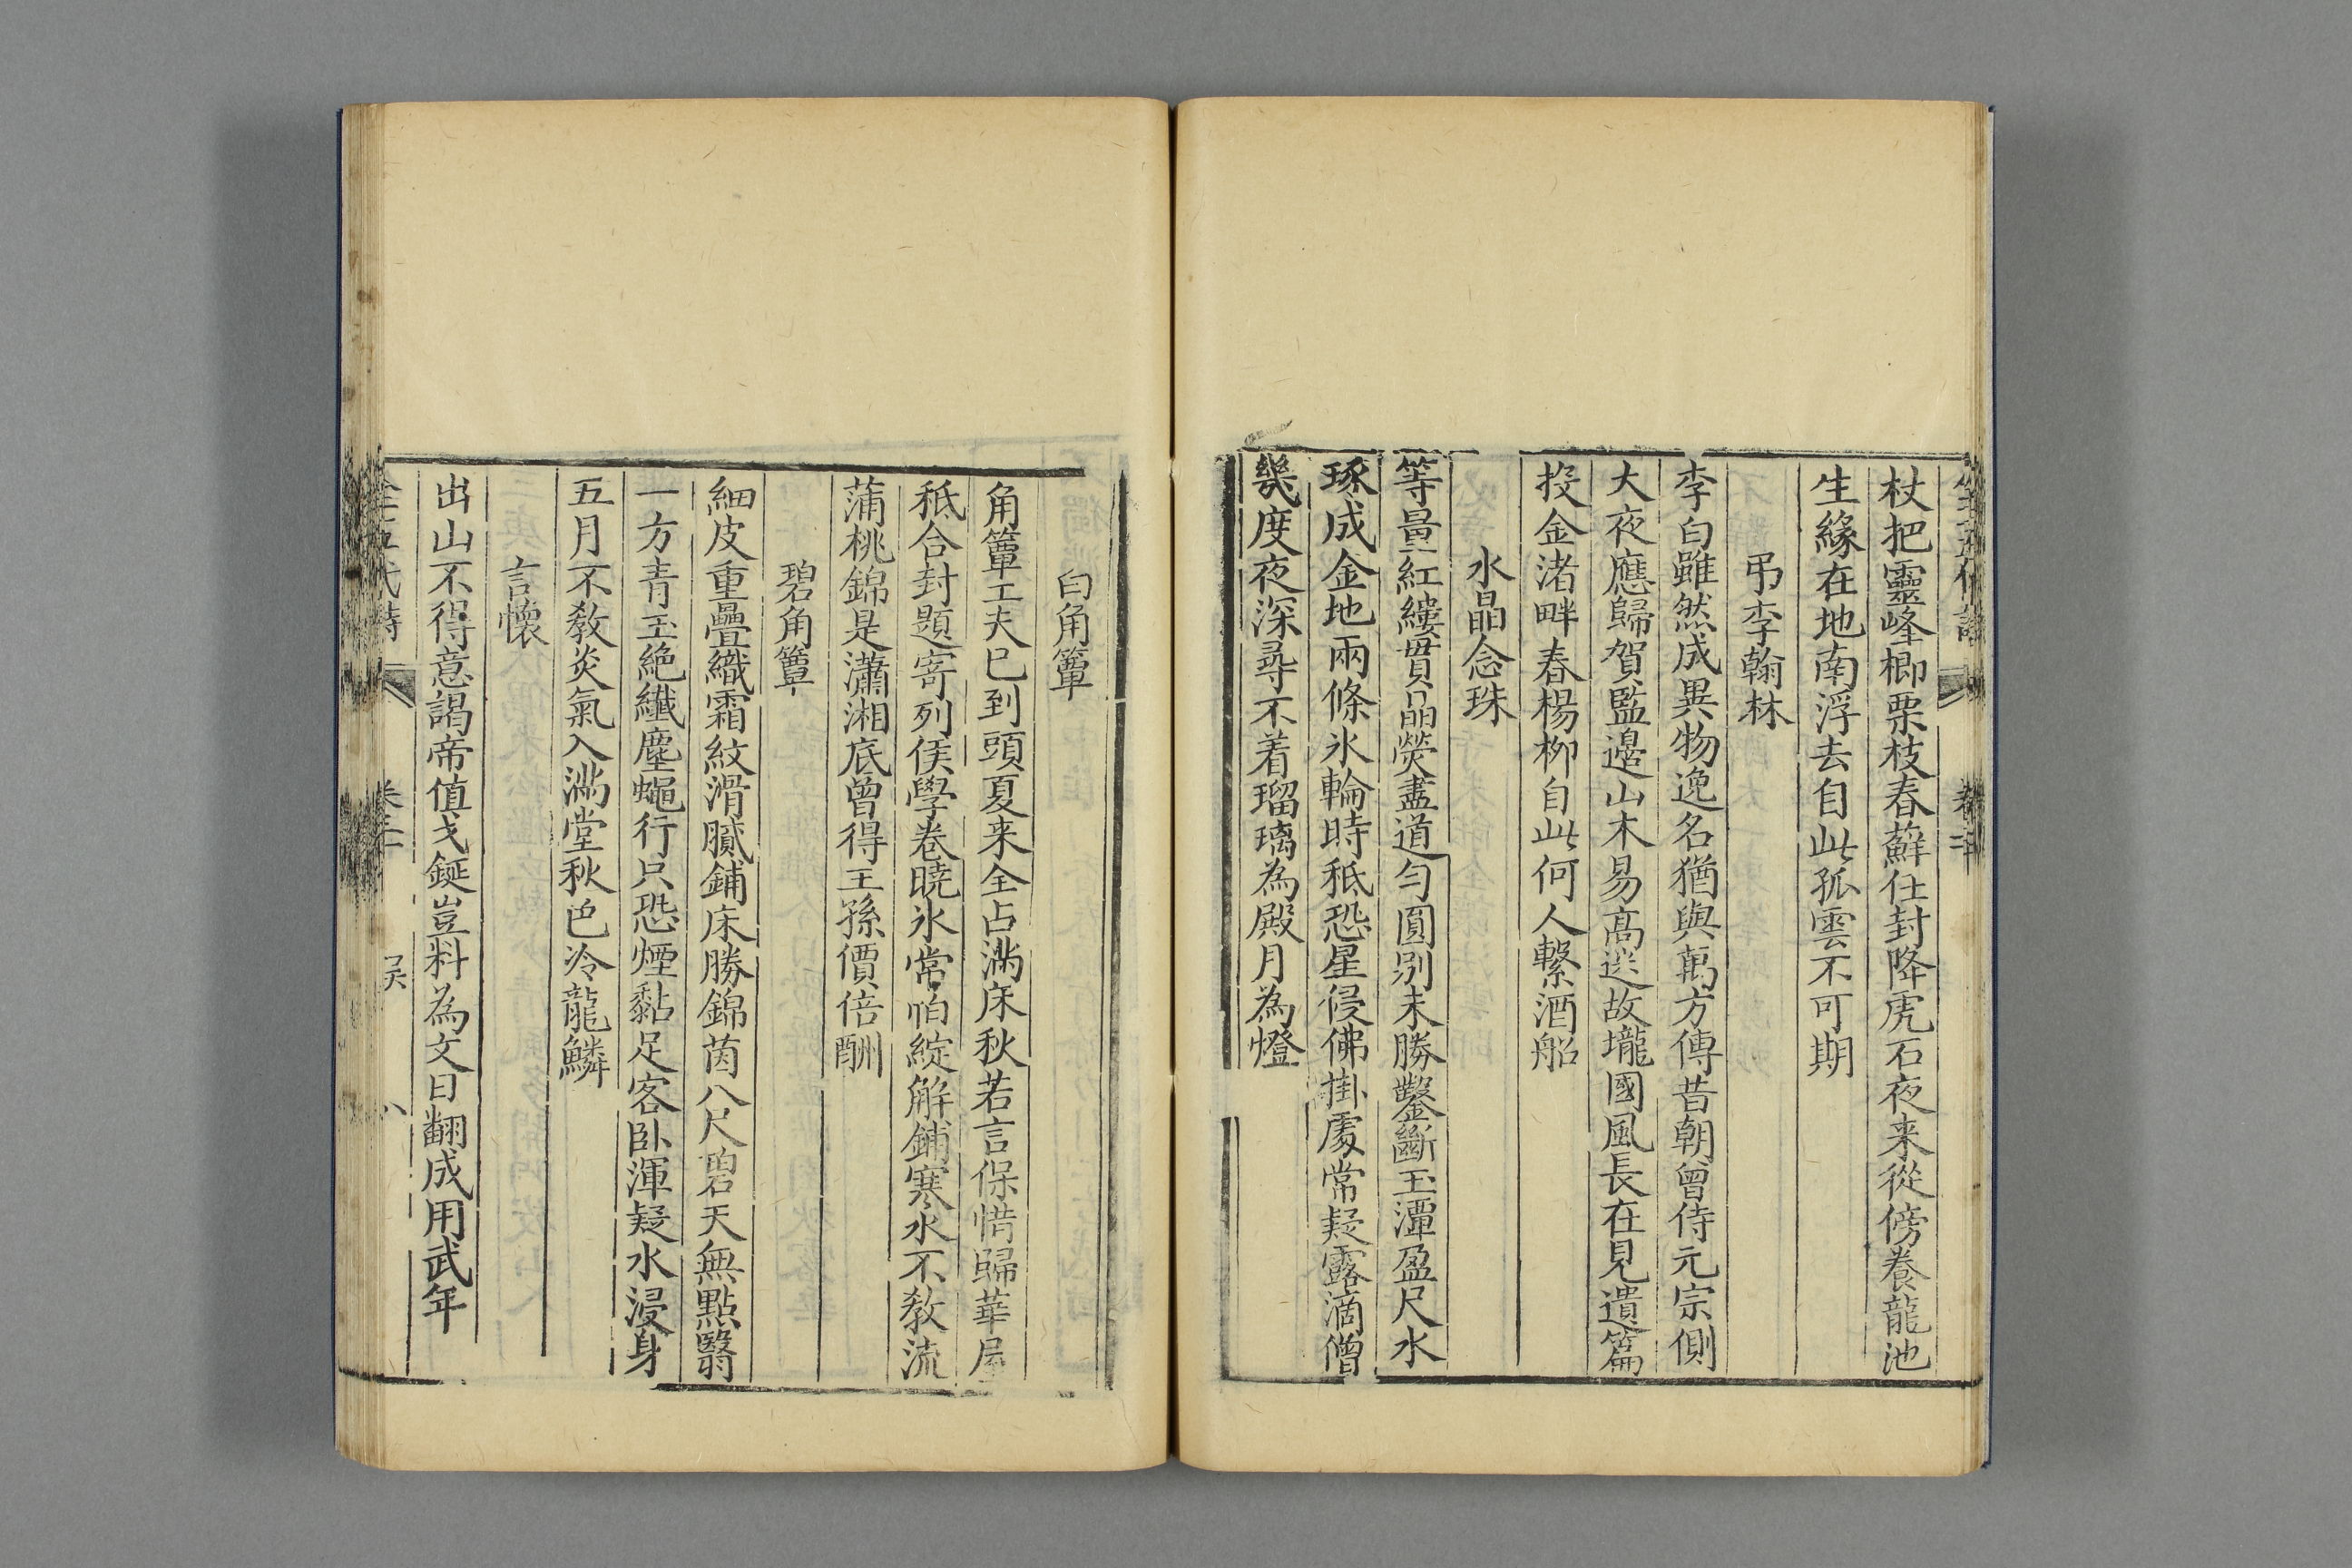 杖把靈峰櫛栗枝春蘚仕封降虎石夜来從傍養龍池
生緣在地南浮去自此孤雲不可期
弔李翰林
李白雖然成異物逸名猶與萬方傳昔朝曾侍元宗側
大夜應歸賀監邊山木易高迷故壠國風長在見遺篇
投金渚畔春楊柳自此何人繫酒船
水晶念珠
等量紅縷貫晶熒盡道勻圓別未勝鑿斷玉潭盈尺水
琢成金地兩條氷輪時秖恐星侵佛掛處常疑露滴僧
幾度夜深尋不着瑠璃為殿月為燈
白角簟
角簟工夫巳到頭夏来全占滿床秋若言保惜歸華屋
秖合封題寄列侯學卷曉氷常怕綻解鋪寒水不教流
蒲桃錦是瀟湘底曾得王孫價倍酬
碧角簟
細皮重疊織霜紋滑膩鋪床勝錦茵八尺碧天無點翳
一方青玉絕纖塵蠅行只恐煙黏足客臥渾疑水浸身
五月不教炎氣入滿堂秋色冷龍鱗
言懷
出山不得意謁帝值戈鋋豈料為文日翻成用武年